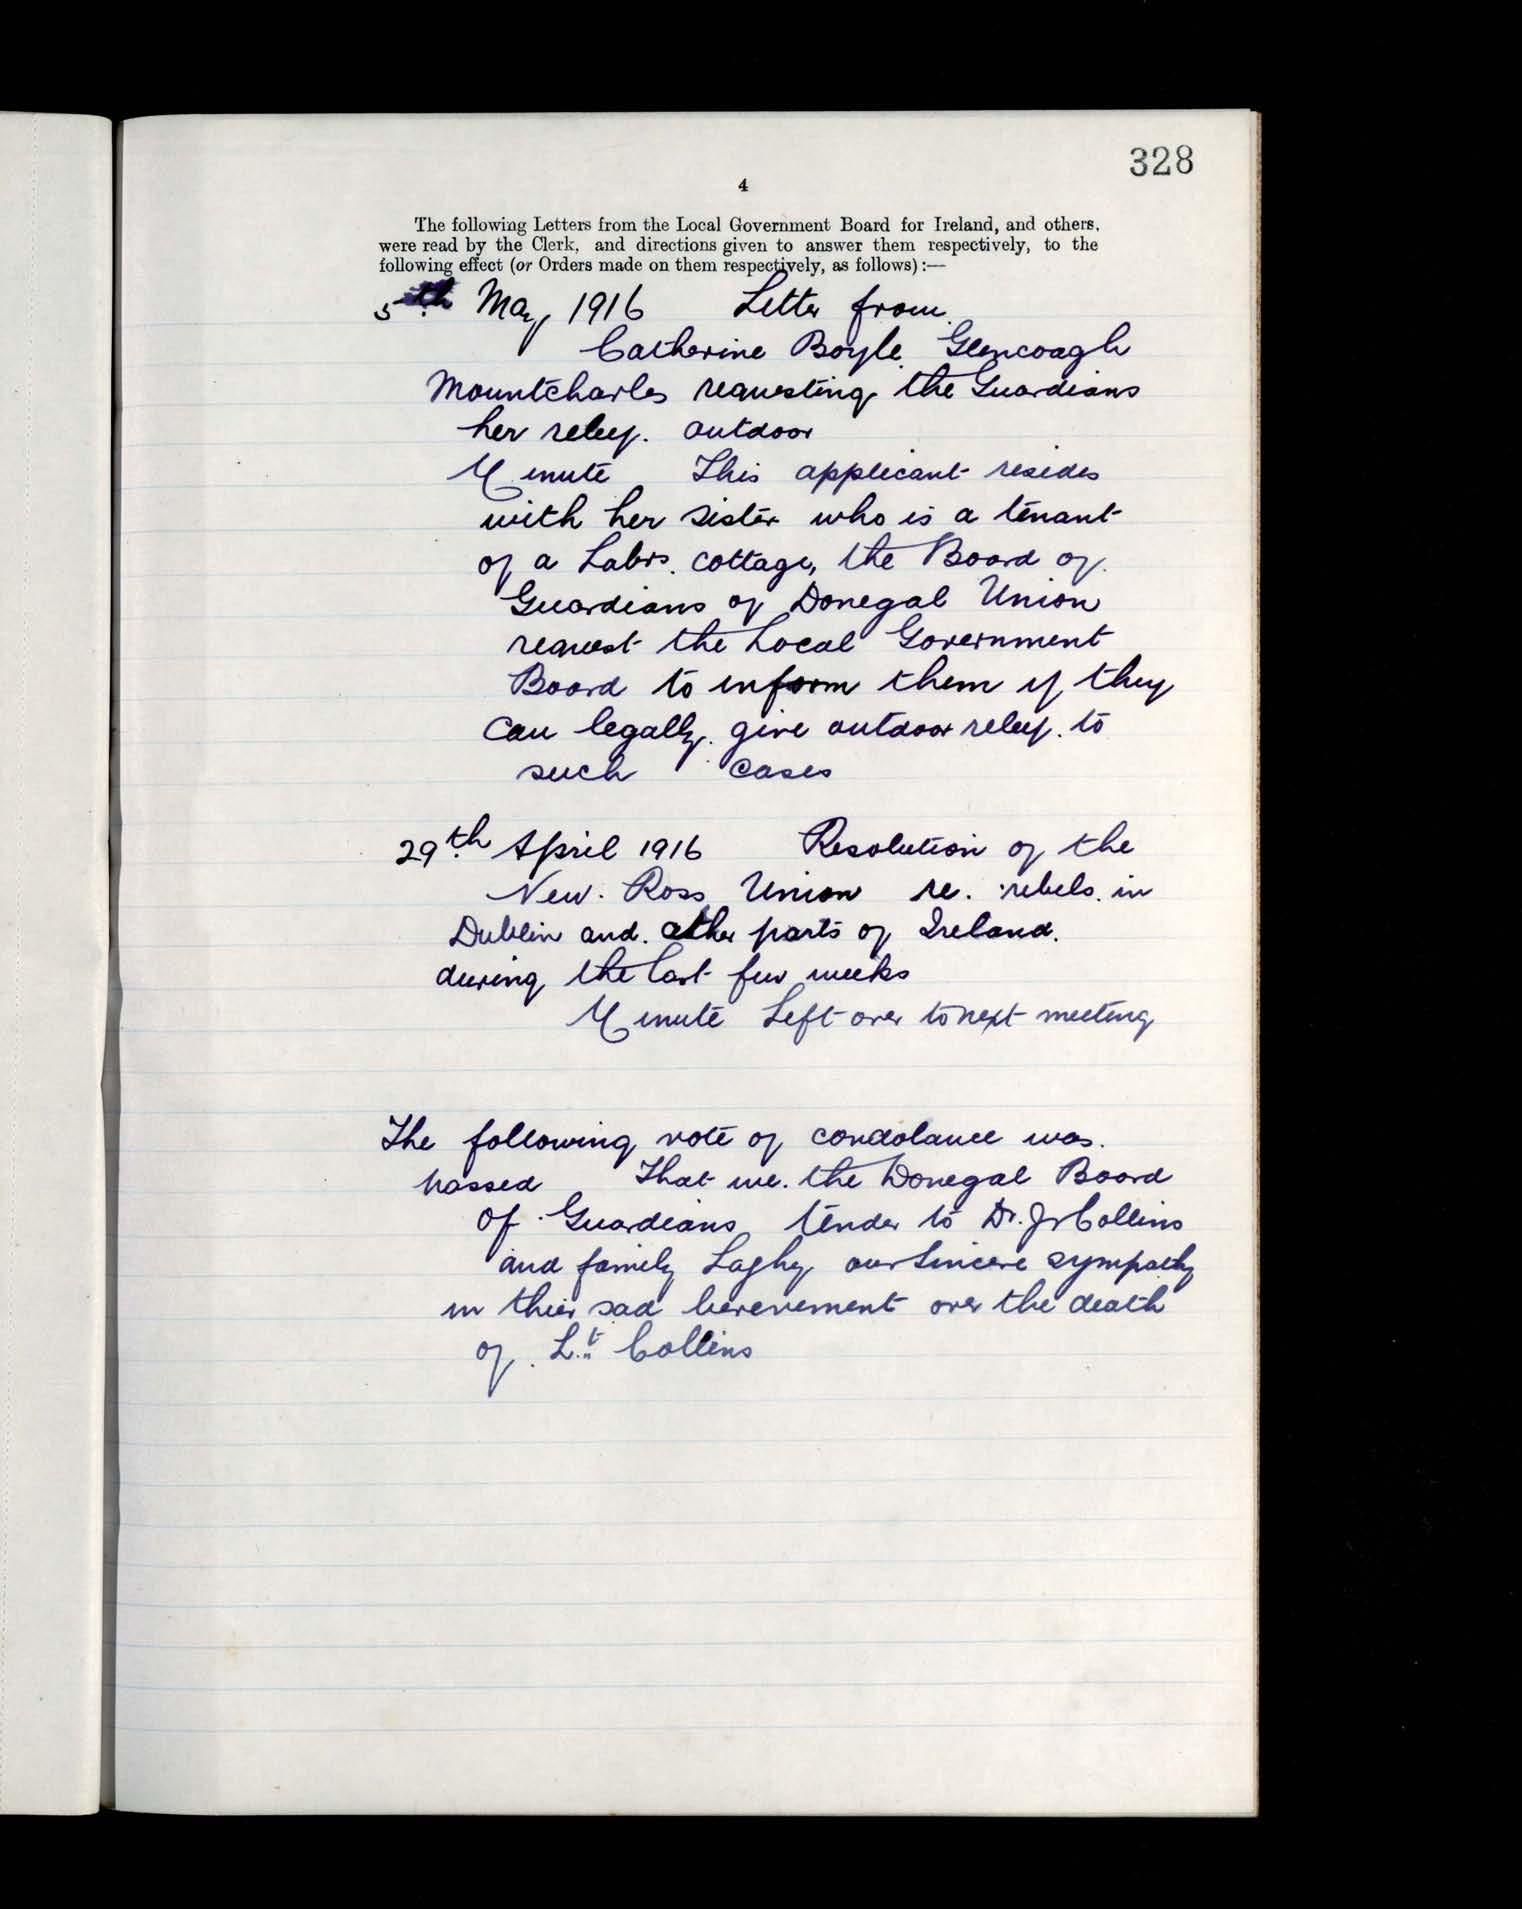 328
4
The following Letters from the Local Government Board for Ireland, and others,
were read by the Clerk, and directions given to answer them respectively, to the
following effect (or Orders made on them respectively, as follows) :—
5th May 1916 Letter from
Catherine Boyle Glencoagh
Mountcharles requesting the Guardians
her relief. outdoor
Minute This applicant resides
with her sister who is a tenant
of a Labrs. cottage, the Board of
Guardians of Donegal Union
request the Local Government
Board to inform them if they
can legally give outdoor relief. to
such cases
29th April 1916 Resolution of the
New Ross Union re. rebels in
Dublin and other parts of Ireland.
during the last few weeks
Minute Left over to next meeting
The following vote of condolance was
passed That we the Donegal Board
of Guardians tender to Dr. Collins
and family Laghy our Sincere sympathy
in their sad berevement over the death
of Lt. Collins